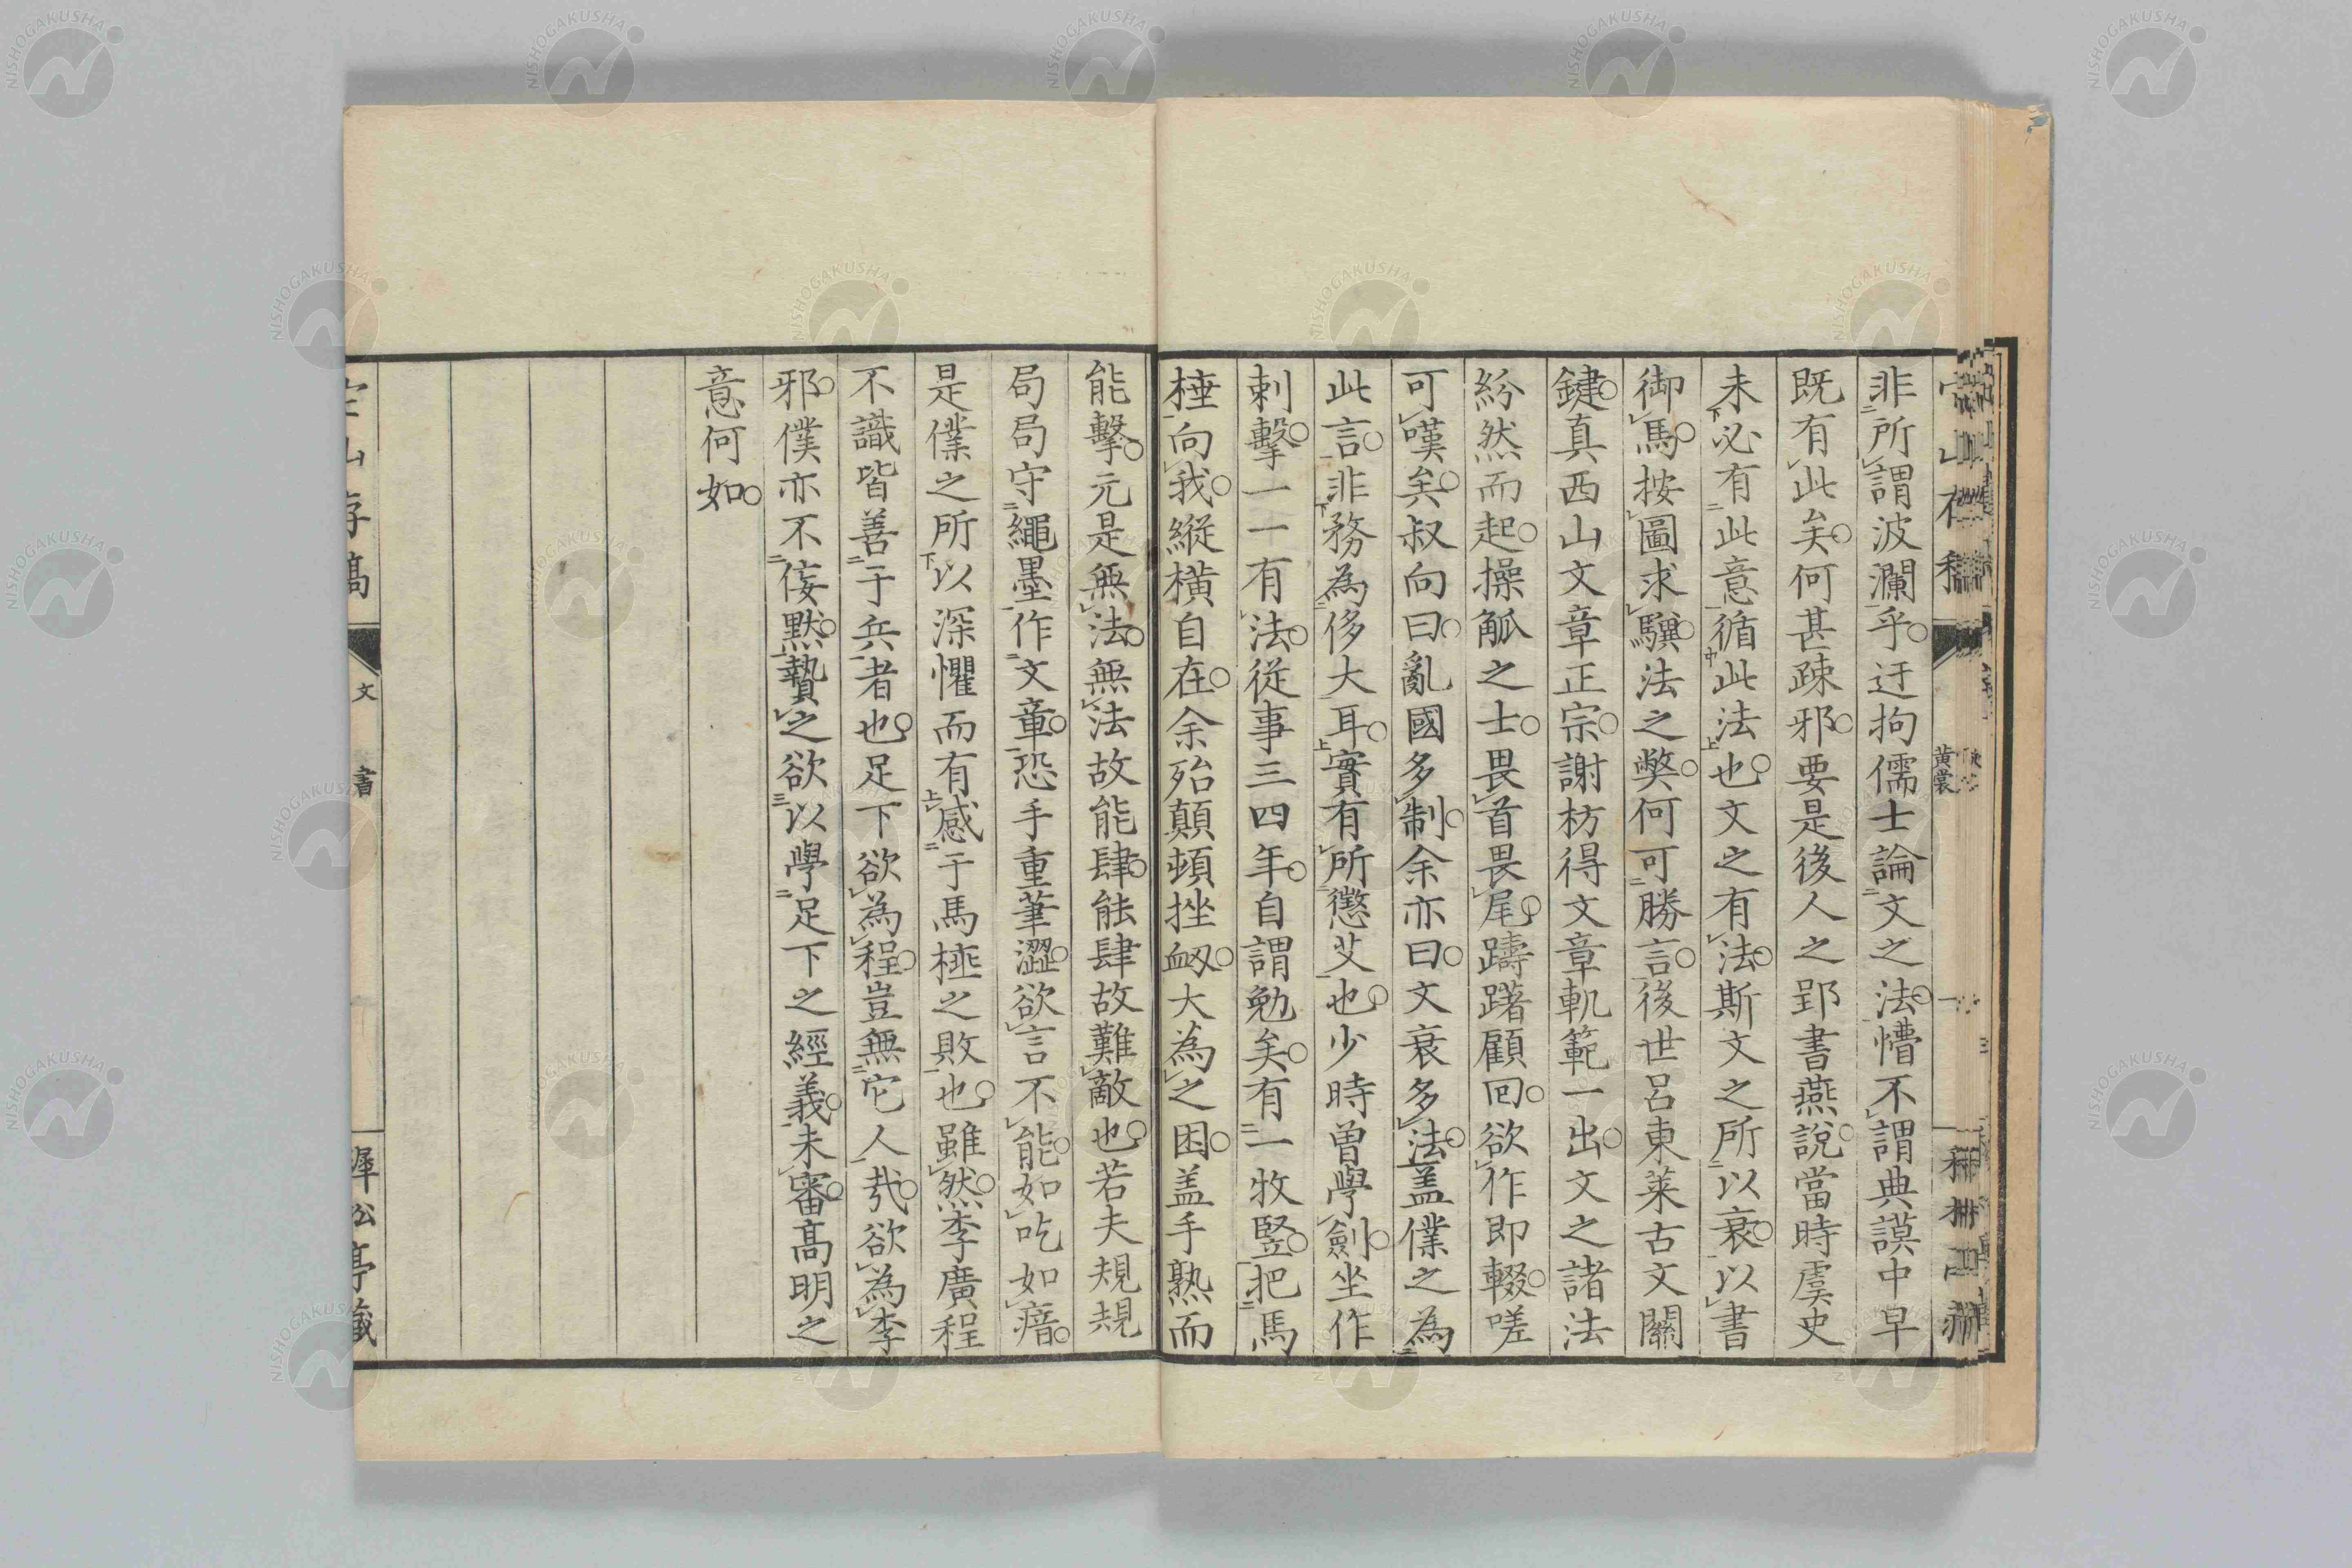 非所謂波瀾乎迂拘儒士論文之法懵不謂典謨中早
既有此矣何甚疎邪要是後人之郢書燕說當時虞史
未必有此意循此法也文之有法斯文之所以衰以書
御馬按圖求驥法之弊何可勝言後世呂東萊古文關
鍵真西山文章正宗謝枋得文章軌範一出文之諸法
紛然而起操觚之士畏首畏尾躊躇顧回欲作即輟嗟
可嘆矣叔向曰亂國多制余亦曰文衰多法盖僕之為
此言非務為侈大耳實有所懲艾也少時曽學劍坐作
刺擊一一有法從事三四年自謂勉矣有一牧竪把馬
棰向我縱橫自在余殆顛頓挫衂大為之困盖手熟而
能擊元是無法無法故能肆能肆故難敵也若夫規規
局局守繩墨作文章恐手重筆澀欲言不能如吃如瘖
是僕之所以深懼而有感于馬極之敗也雖然李廣程
不識皆善于兵者也足下欲為程豈無它人哉欲為李
邪僕亦不倭黙贄之欲以學足下之經義未審高明之
意何如
文 書
黄裳
NISHOGAKUSHA